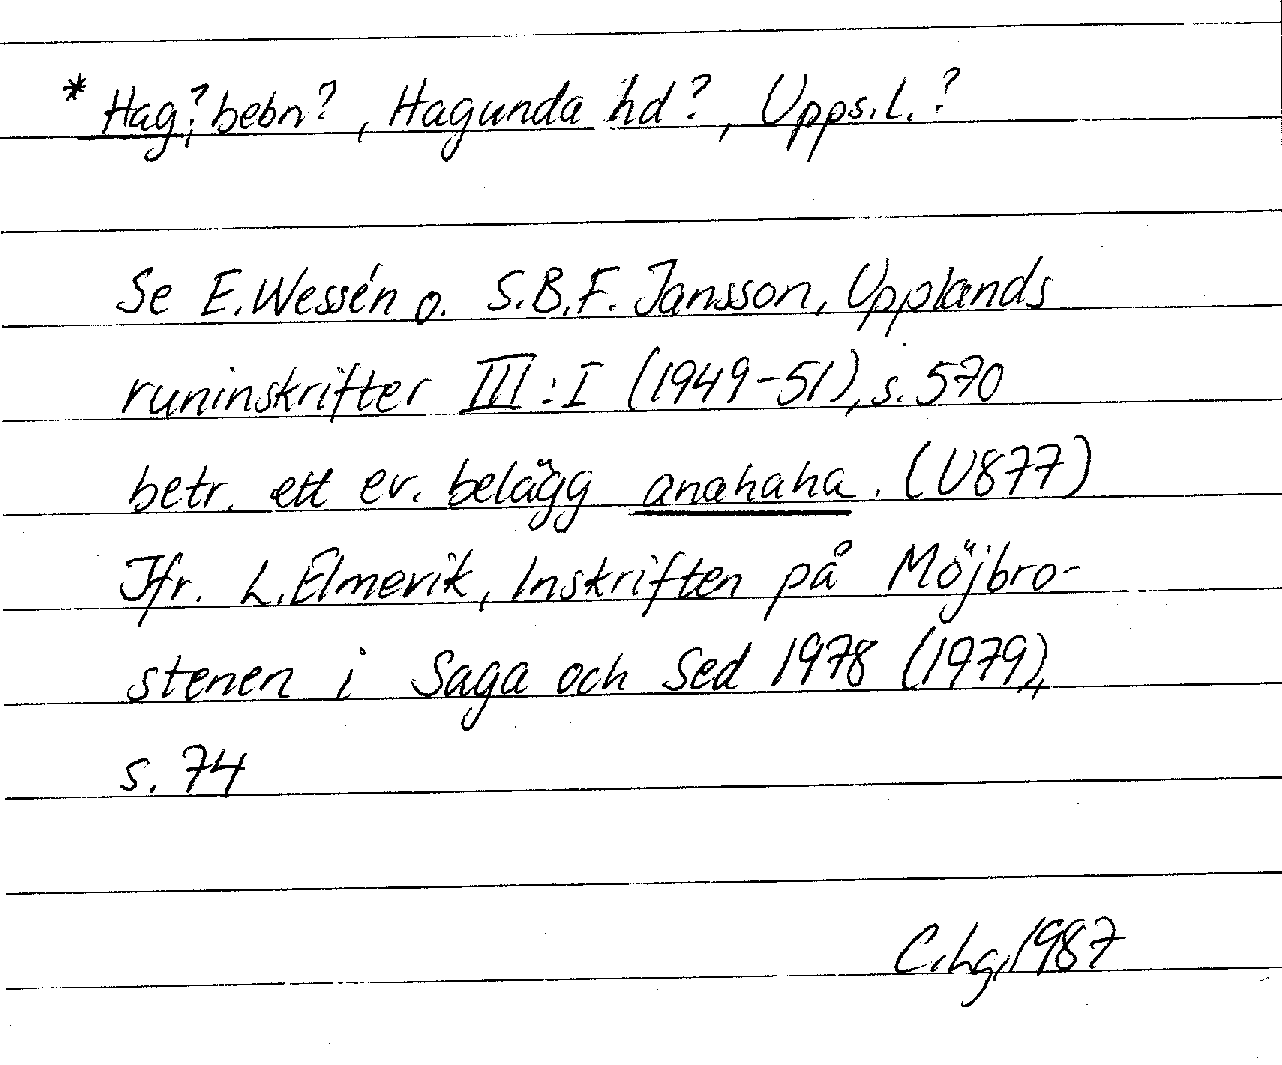 * Hag?, bebn?, Hagunda hd?, Upps.l.?
Se E. Wessén o. S.B.F. Jansson, Upplands
runinskrifter III:I (1949-51), s. 570
betr. ett ev. belägg anahaha. (U877)
Jfr. L. Elmevik, Inskriften på Möjbro-
stenen i Saga och Sed 1978 (1979),
s. 74
C.hg, 1987